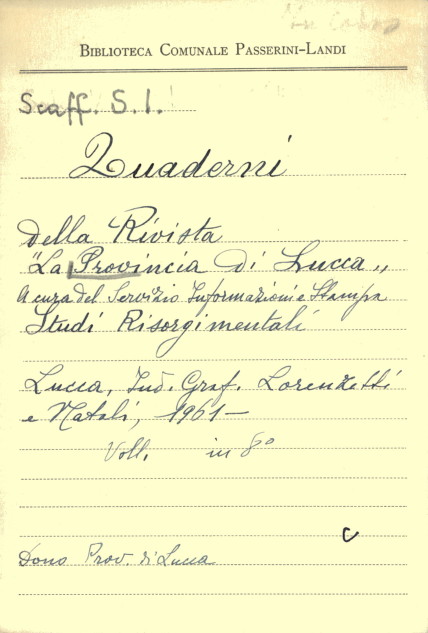 in corso
BIBLIOTECA COMUNALE PASSERINI-LANDI
Scaff. S. I.
Quaderni
della Rivista
"La Provincia di Lucca"
A cura del Servizio Informazioni e Stampa
Studi Risorgimentali
Lucca, Ind. Graf. Lorenzetti
e Natali, 1961-
Voll. in 8°
C
Dono Prov. di Lucca